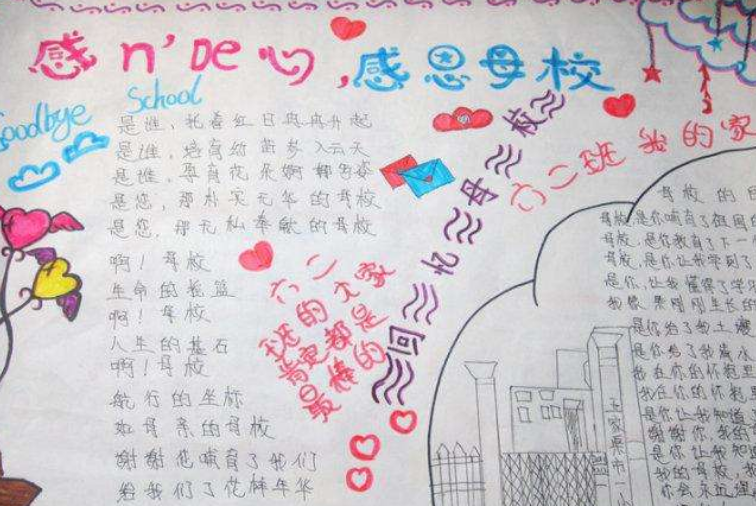 感 n' De 心,感恩母校
Goodbye School
是谁,托着红日冉冉升起
是谁,培育幼苗发入云天
是谁,孕育花朵婀娜多姿
是您,那朴实无华的母校
是您,那无私奉献的母校
啊!母校
生命的摇篮
啊!母校
人生的基石
啊!母校
航行的坐标
如母亲的母校
谢谢您哺育了我们
给我们了花样年华
六二
班的大家
肯定都是
最棒的
回忆母校
六二班 我的家
母校的
母校,是你哺育了祖国
母校,是你教育了下一
母校,是你让我学到了
是你,让我懂得了学
是你给了我
我在你的怀抱里
我在你的怀抱
是你让我知道
谢谢你,我的
是你让我知
我的母校
你会永远